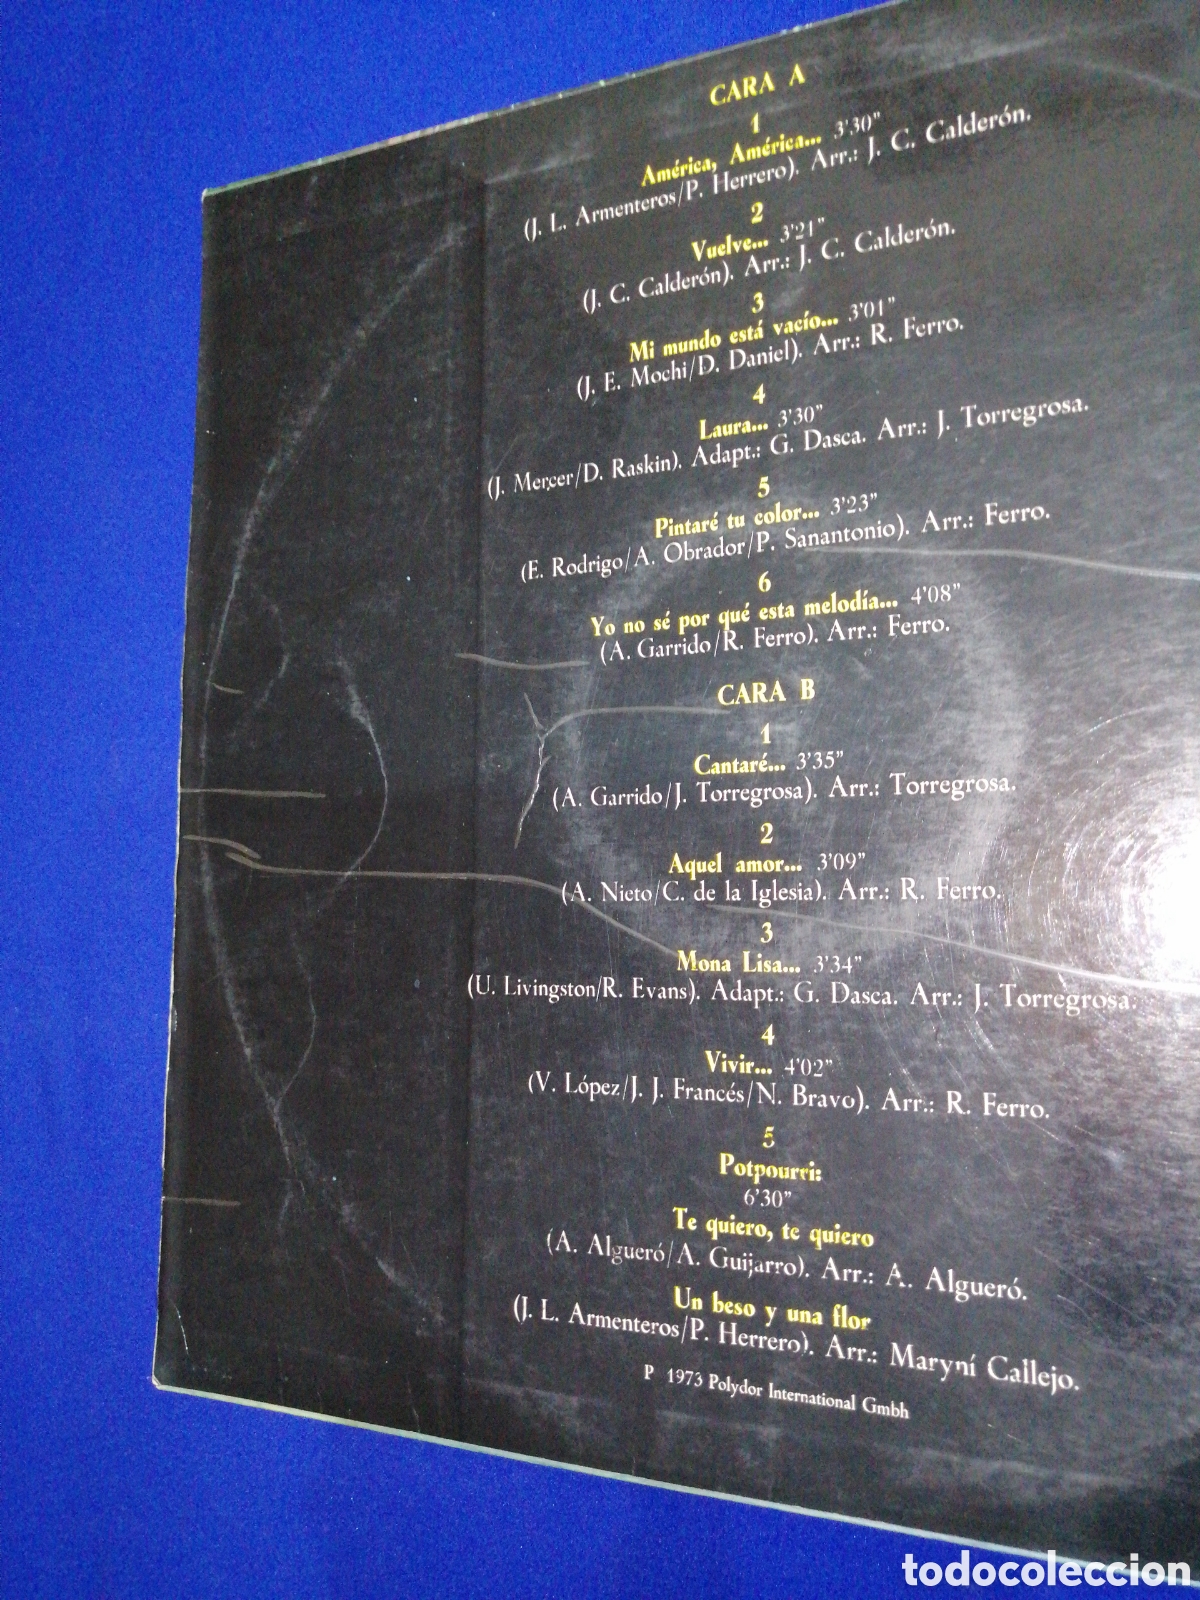 CARA A
1
América, América... 3'30"
(J. L. Armenteros/P. Herrero). Arr.: J. C. Calderón.
2
Vuelve... 3'21"
(J. C. Calderón). Arr.: J. C. Calderón.
3
Mi mundo está vacío... 3'01"
(J. E. Mochi/D. Daniel). Arr.: R. Ferro.
4
Laura... 3'30"
(J. Mercer/D. Raskin). Adapt.: G. Dasca. Arr.: J. Torregrosa.
5
Pintaré tu color... 3'23"
(E. Rodrigo/A. Obrador/P. Sanantonio). Arr.: Ferro.
6
Yo no sé por qué esta melodía... 4'08"
(A. Garrido/R. Ferro). Arr.: Ferro.
CARA B
1
Cantaré... 3'35"
(A. Garrido/J. Torregrosa). Arr.: Torregrosa.
2
Aquel amor... 3'09"
(A. Nieto/C. de la Iglesia). Arr.: R. Ferro.
3
Mona Lisa... 3'34"
(U. Livingston/R. Evans). Adapt.: G. Dasca. Arr.: J. Torregrosa.
4
Vivir... 4'02"
(V. López/J. J. Francés/N. Bravo). Arr.: R. Ferro.
5
Potpourri:
6'30"
Te quiero, te quiero
(A. Algueró/A. Guijarro). Arr.: A. Algueró.
Un beso y una flor
(J. L. Armenteros/P. Herrero). Arr.: Maryní Callejo.
P 1973 Polydor International Gmbh
todocoleccion